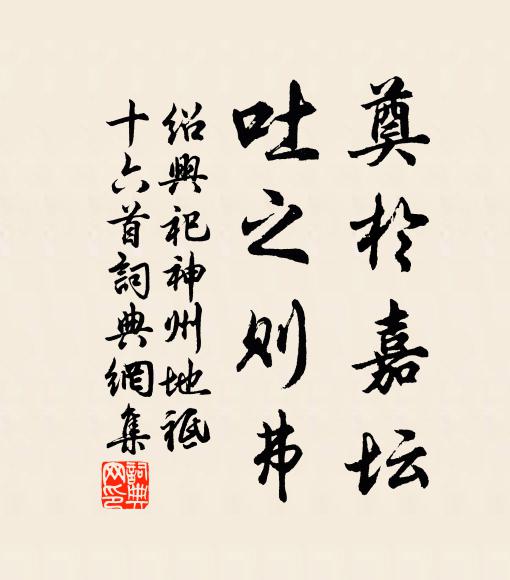 奠於嘉坛
吐之则弗
绍興祀神州地祗
十六首詞典網集
詞典网印